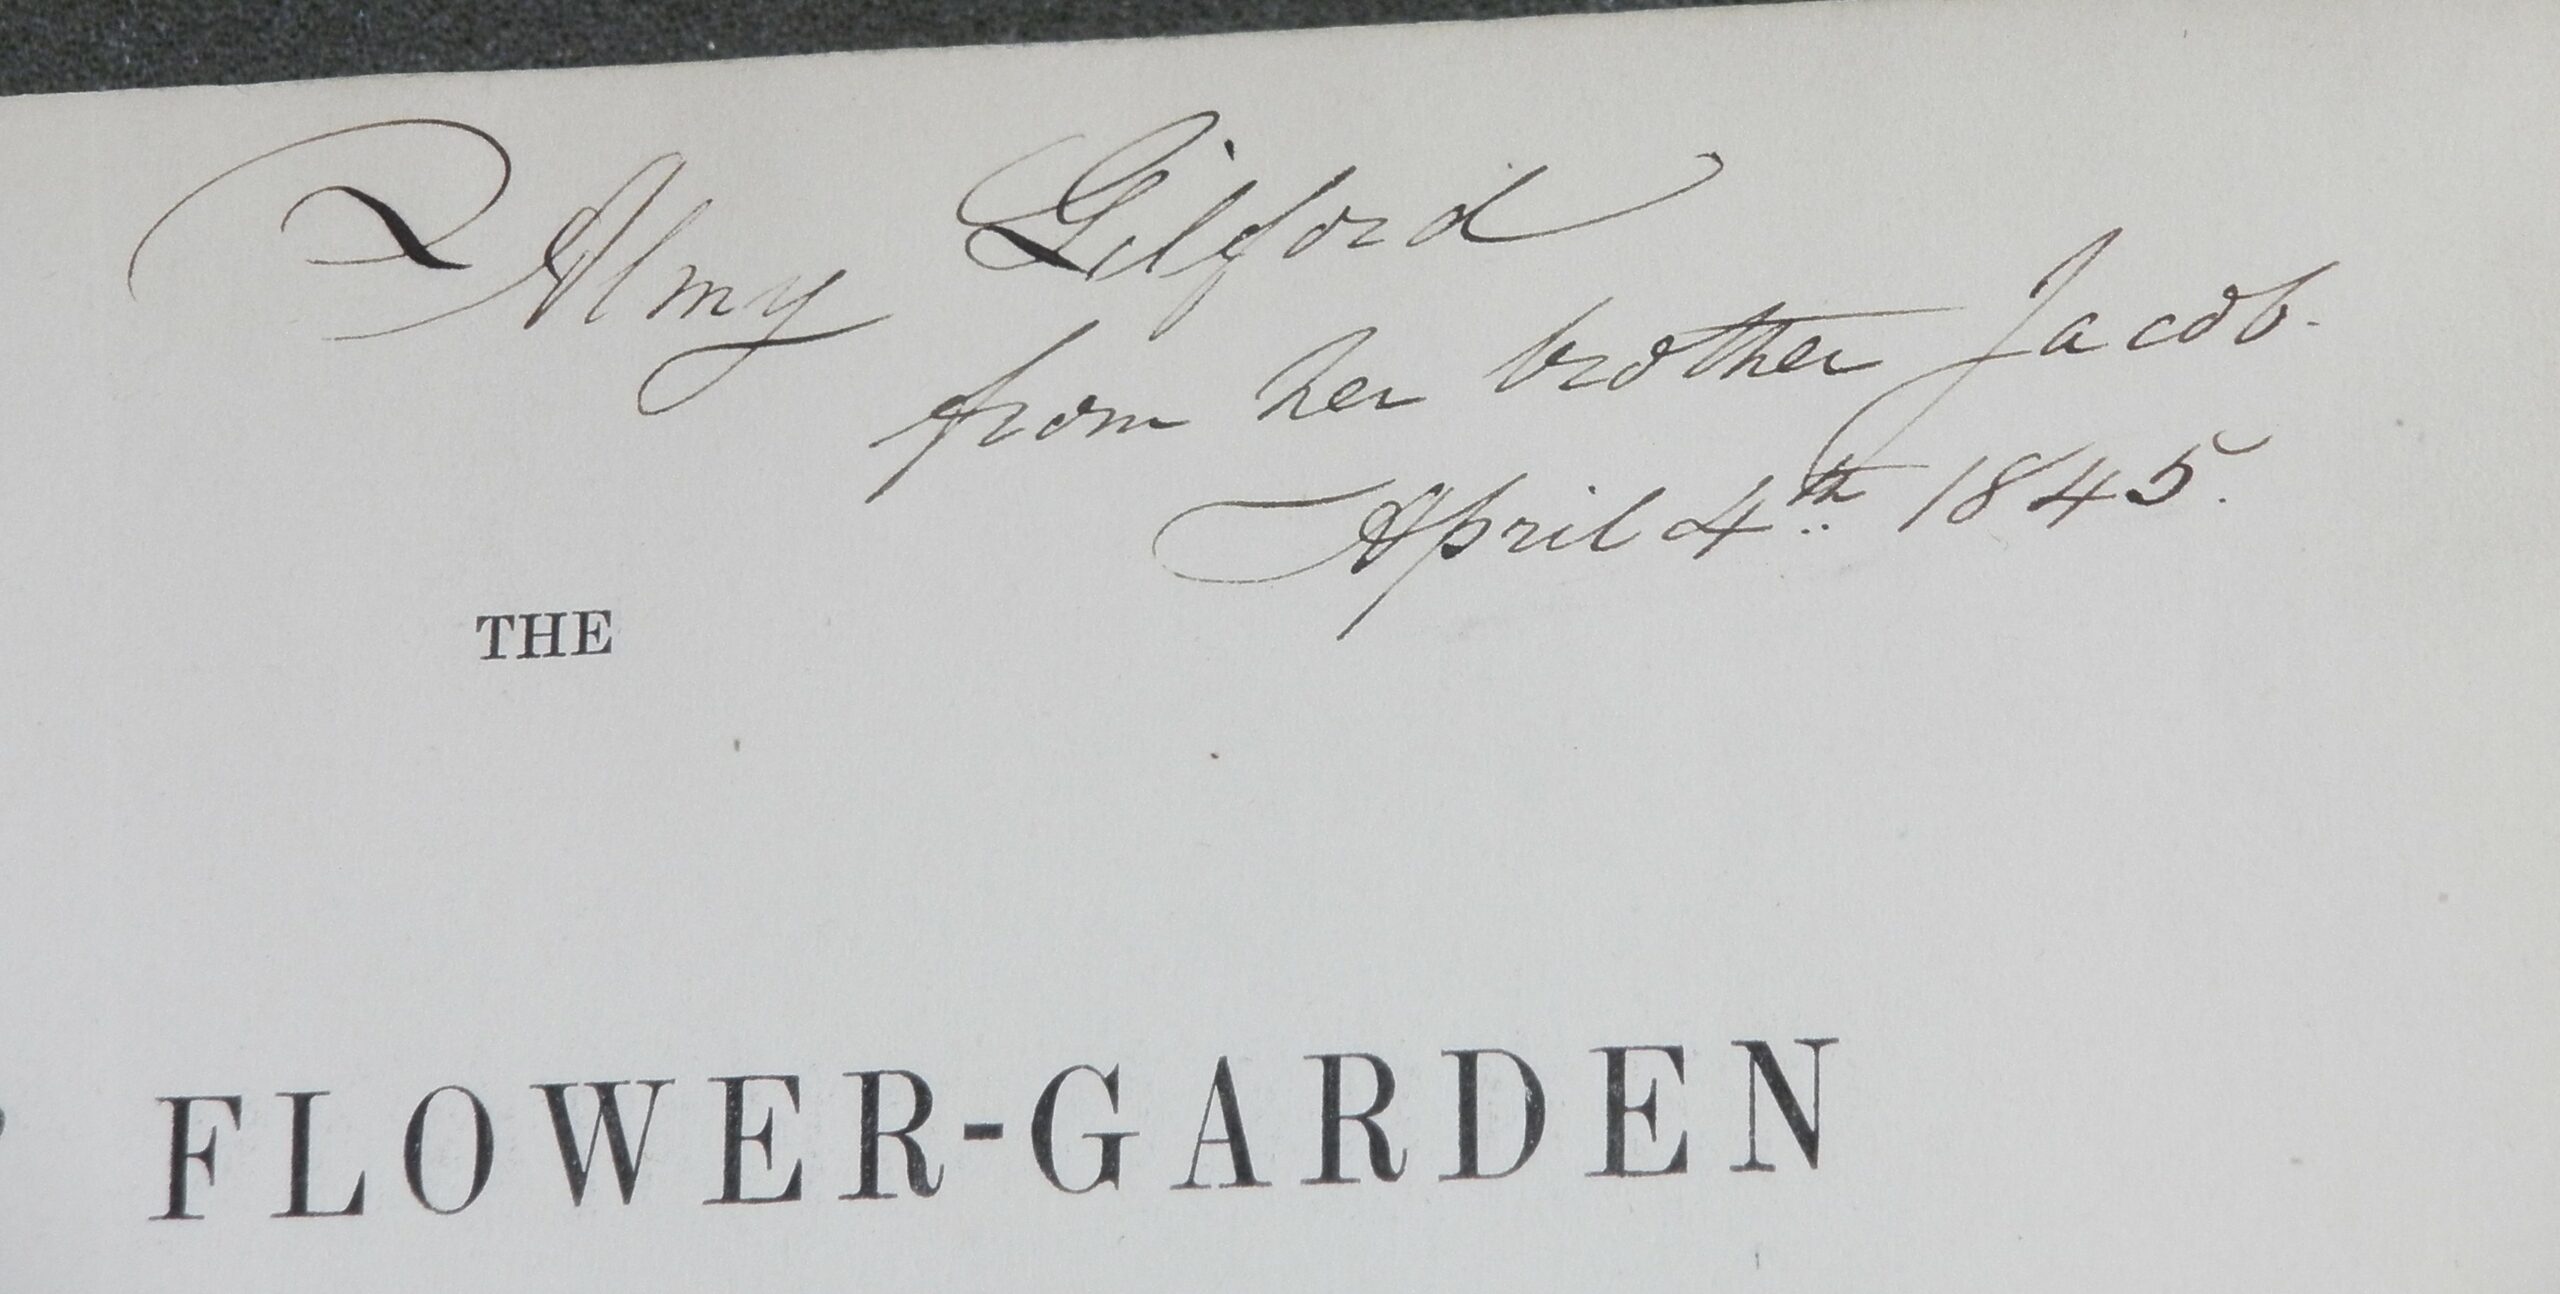 Almy Gilford
from her brother Jacob.
April 4th 1845.
THE
FLOWER-GARDEN